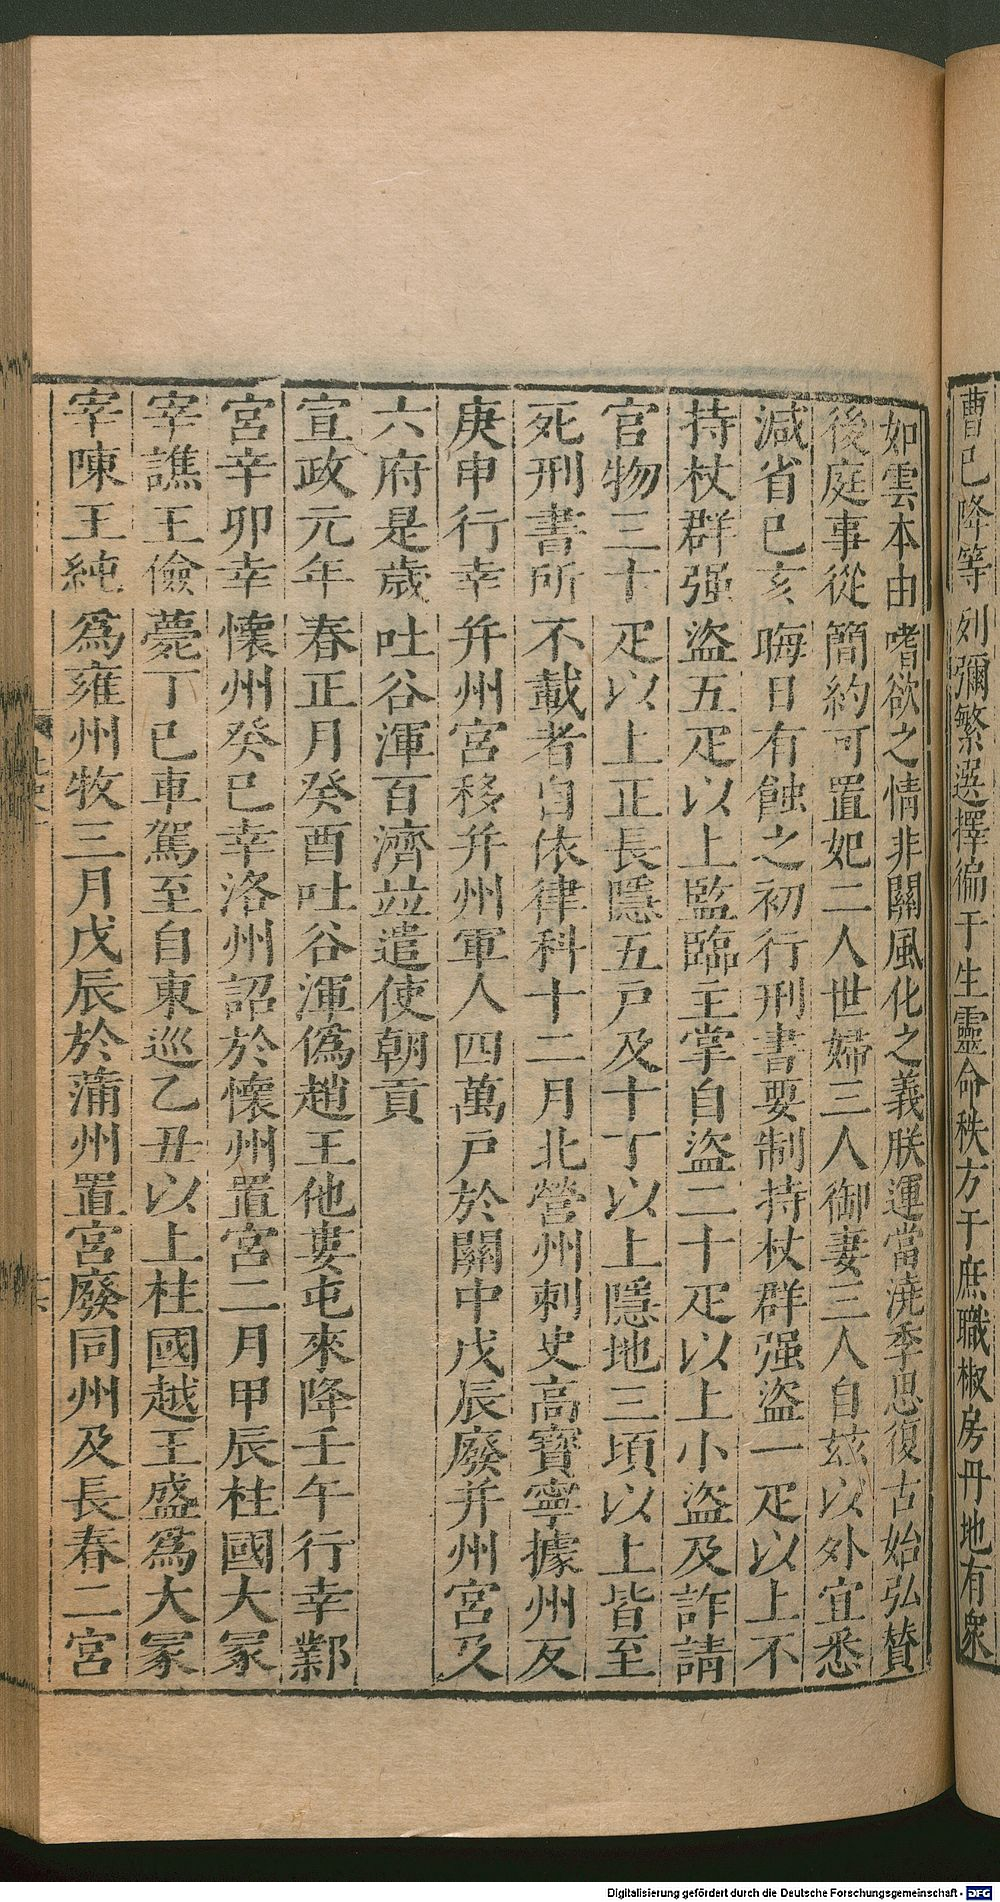 曹已降等列彌繁選擇徧于生靈命秩方于庶職椒房丹地有衆
如雲本由嗜欲之情非關風化之義朕運當澆季思復古始弘賛
後庭事從簡約可置妃二人世婦三人御妻三人自茲以外宜悉
減省巳亥晦日有蝕之初行刑書要制持杖群强盜一疋以上不
持杖群强盜五疋以上監臨主掌自盜二十疋以上小盜及詐請
官物三十疋以上正長隱五戸及十丁以上隱地三頃以上皆至
死刑書所不載者自依律科十二月北營州刺史高寶寧據州反
庚申行幸并州宮移并州軍人四萬戸於關中戊辰廢并州宮及
六府是歲吐谷渾百濟並遣使朝貢
宣政元年春正月癸酉吐谷渾僞趙王他婁屯來降壬午行幸鄴
宮辛卯幸懷州癸巳幸洛州詔於懷州置宮二月甲辰柱國大冢
宰譙王儉薨丁巳車駕至自東巡乙丑以上柱國越王盛爲大冢
宰陳王純爲雍州牧三月戊辰於蒲州置宮廢同州及長春二宮
Digitalisierung gefördert durch die Deutsche Forschungsgemeinschaft - DFG